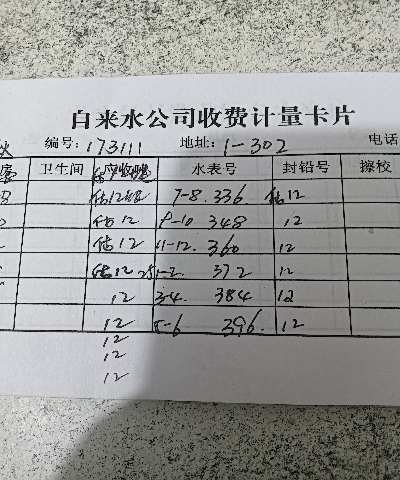 自来水公司收费计量卡片
编号: 173111 地址: 1-302 电话
卫生间 应收吨 水表号 封铅号 擦校
估12 7-8. 336 估12
估12 9-10 348 12
估12 11-12. 360 12
估12 25 1-2 372 12
12 3-4. 384 12
12 5-6 396. 12
12
12
12